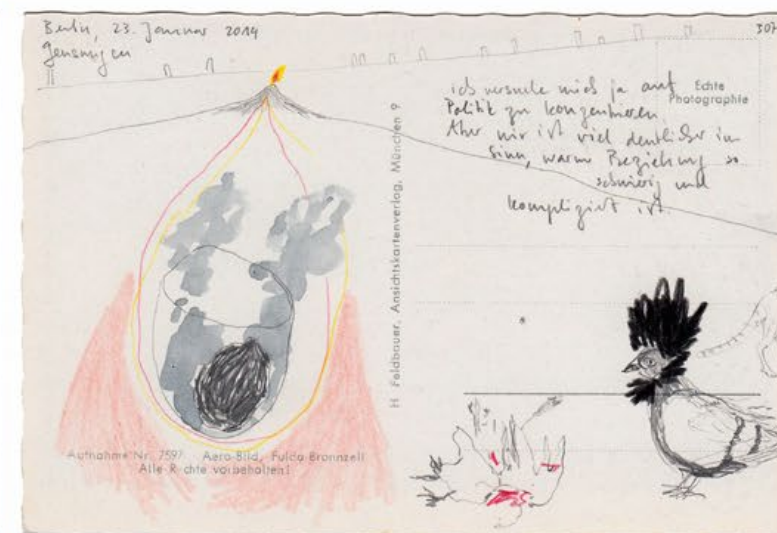 Berlin, 23. Januar 2014
Gensungen
307
ich versuche mich ja auf
Politik zu konzentrieren
Aber mir ist viel deutlicher im
Sinn, warum Beziehung so
schwierig und
kompliziert ist.
Echte
Photographie
H Feldbauer, Ansichtskartenverlag, München 9
Aufnahme Nr. 7597 Aero-Bild, Fulda-Bronnzell
Alle R chte vorbehalten!